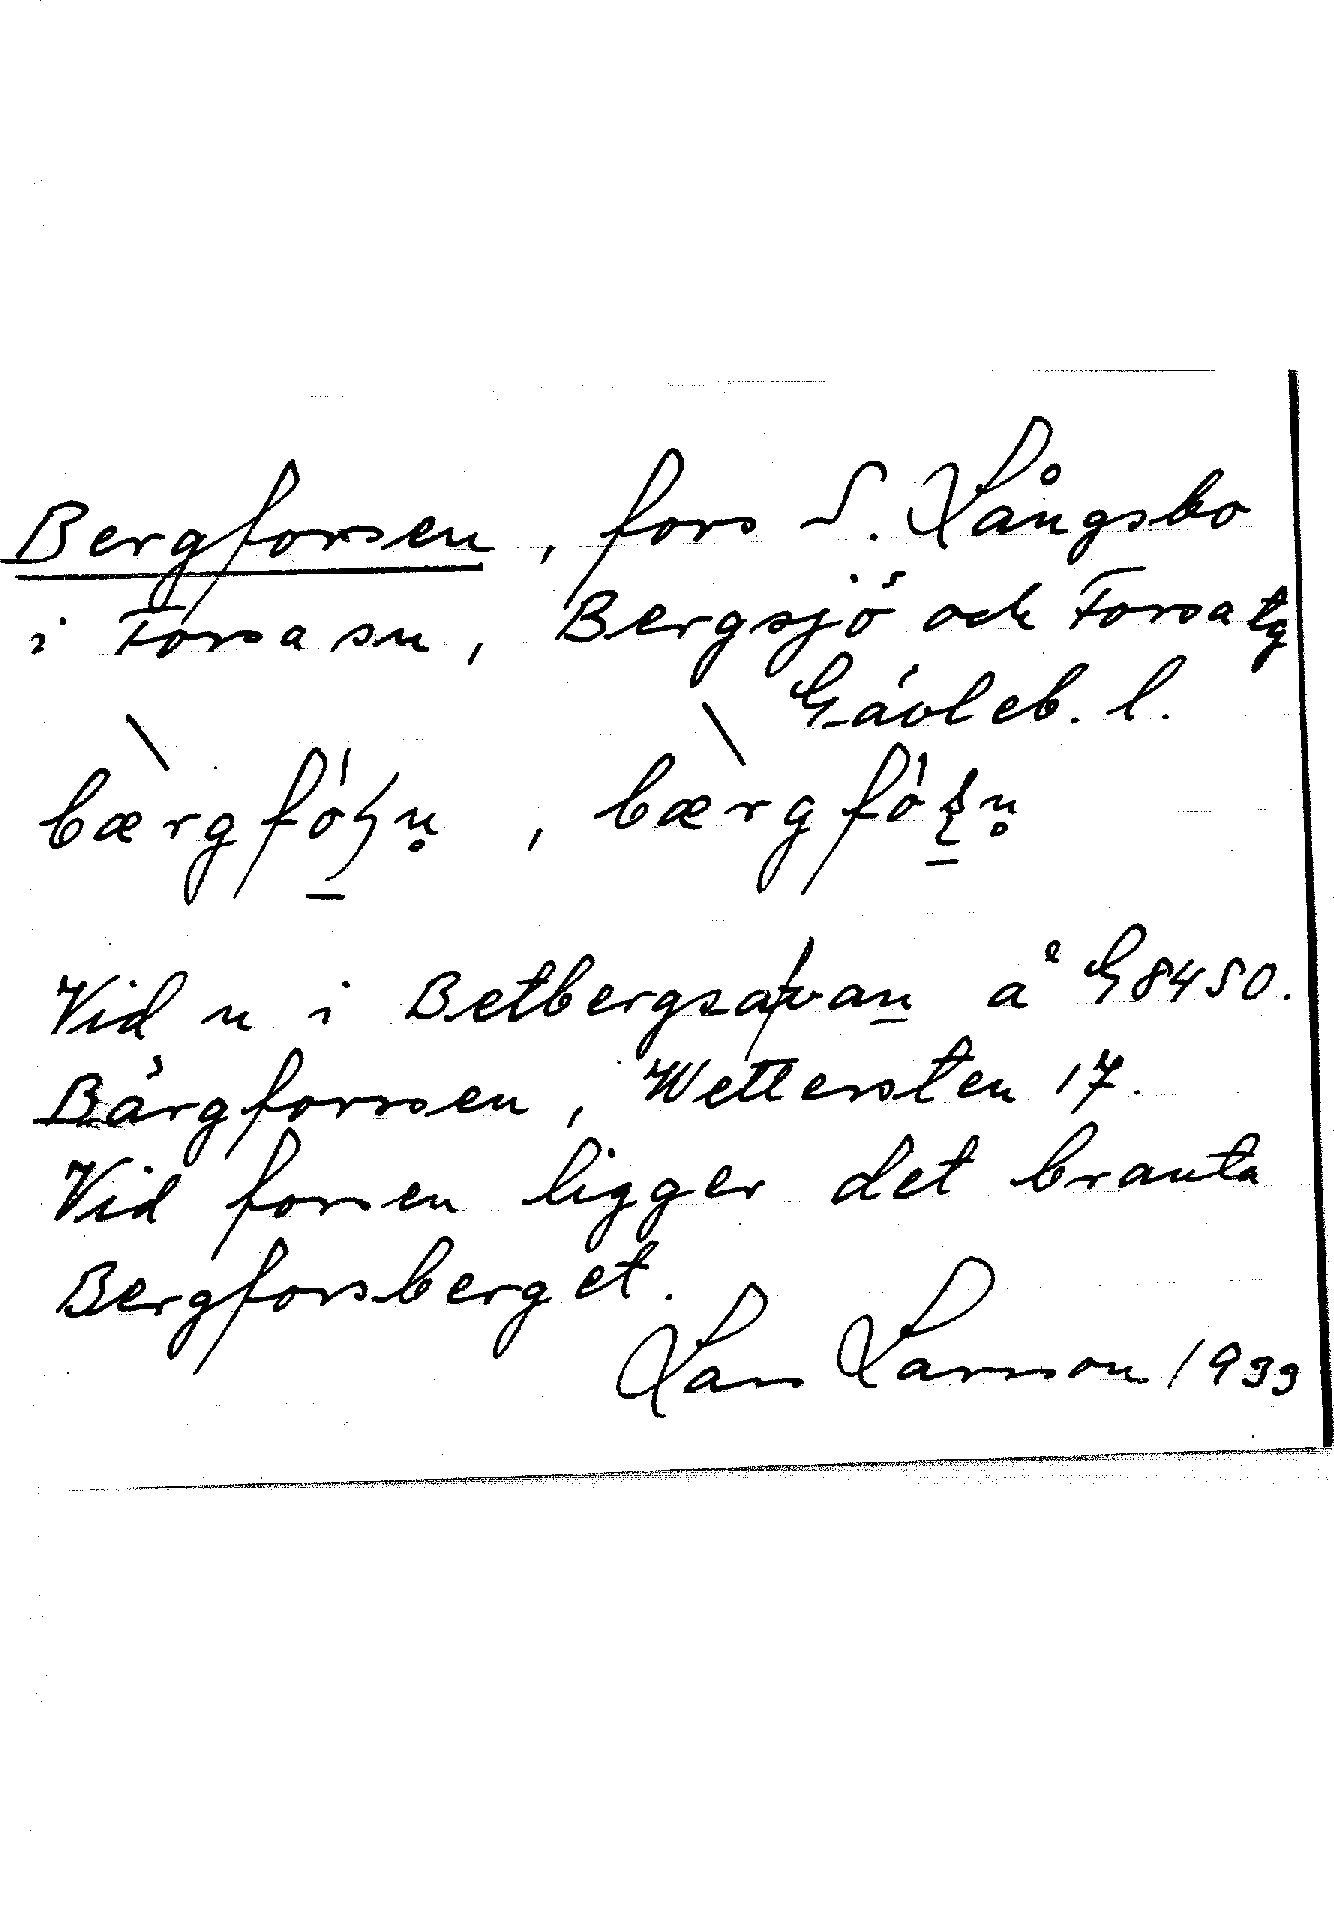 Bergforsen, fors S. Långsbo
i Forsa sn, Bergsjö och Forsa tg
Gävleb. l.
Vid n i Betbergsavan å G8450.
Bärgforrsen, Wettersten 17.
Vid forsen ligger det branta
Bergforsberget.
Lars Larsson 1933